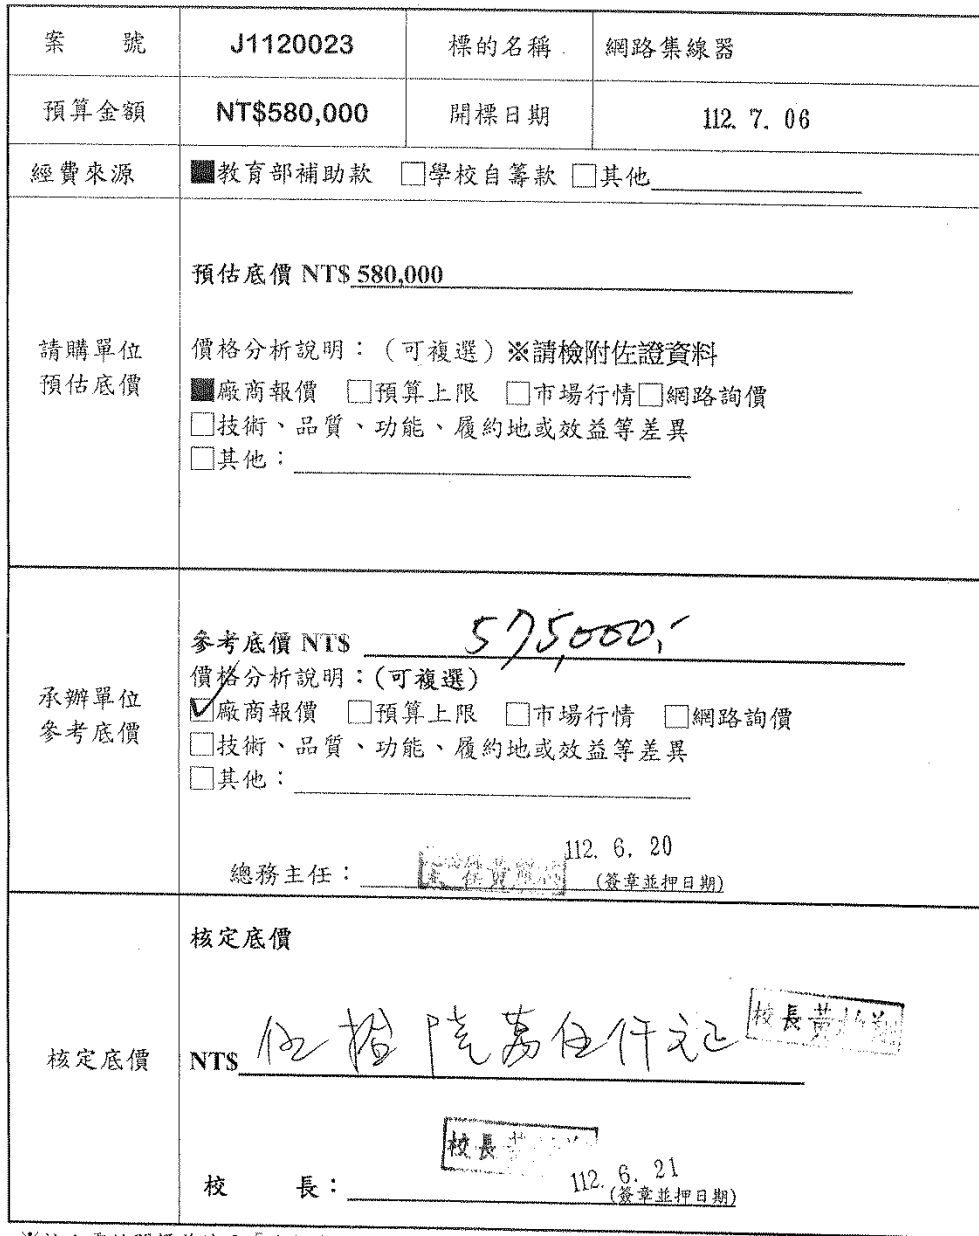 案 號 J1120023 標的名稱 網路集線器
預算金額 NT$580,000 開標日期 112. 7. 06
經費來源 ■教育部補助款 □學校自籌款 □其他
請購單位
預估底價
預估底價 NT$ 580,000
價格分析說明：（可複選）※請檢附佐證資料
■廠商報價 □預算上限 □市場行情□網路詢價
□技術、品質、功能、履約地或效益等差異
□其他：
承辦單位
參考底價
參考底價 NT$ 575,000,-
價格分析說明：(可複選)
☑廠商報價 □預算上限 □市場行情 □網路詢價
□技術、品質、功能、履約地或效益等差異
□其他：
112. 6. 20
總務主任： (簽章並押日期)
核定底價
核定底價
校長黃
NT$ 伍拾陸萬伍仟元正
校長
112. 6. 21
校 長： (簽章並押日期)